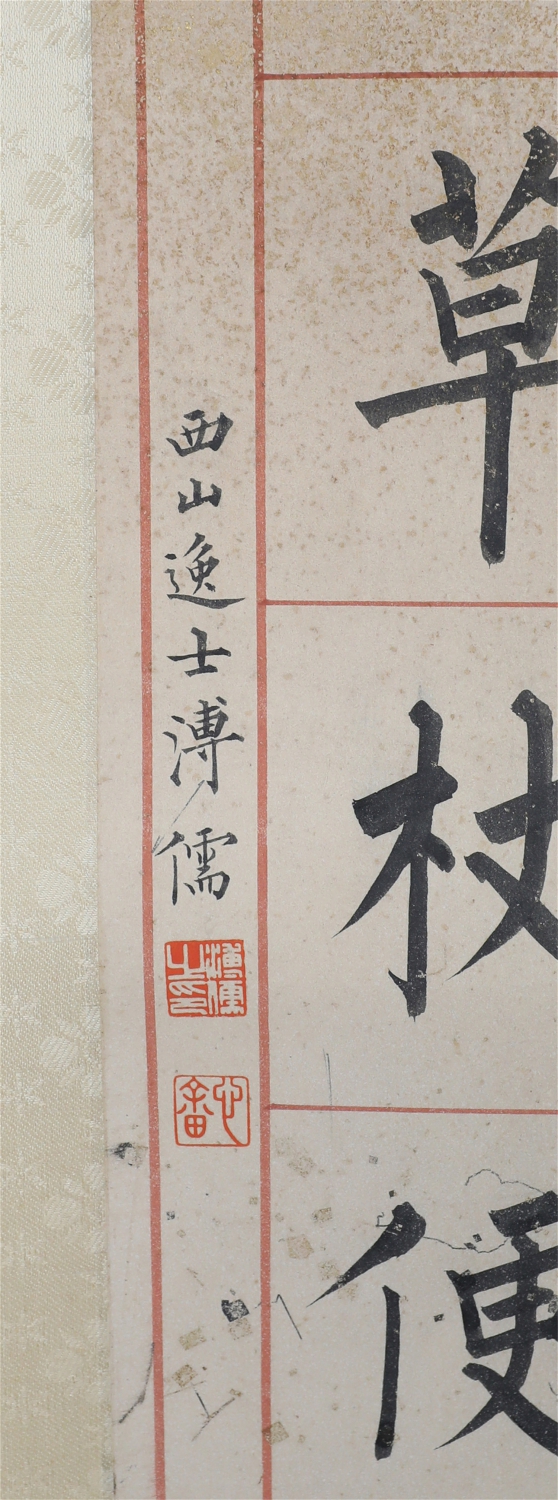 草杖便
西山逸士溥儒
溥儒之印
心畬